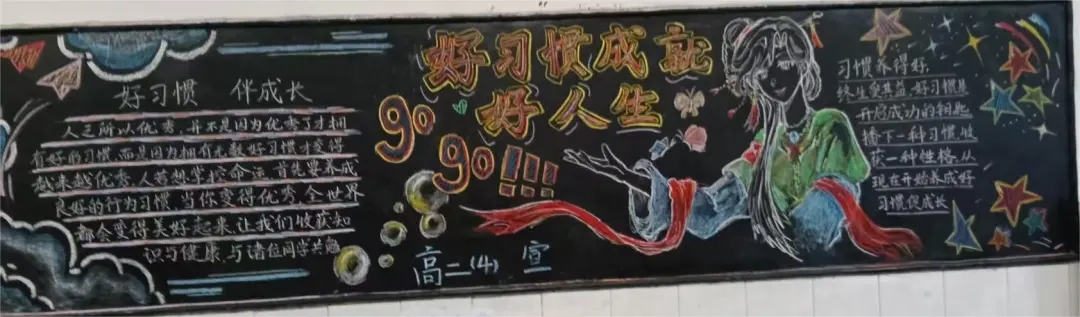 好习惯 伴成长
人之所以优秀,并不是因为优秀了才拥
有好的习惯,而是因为拥有无数好习惯才变得
越来越优秀,人若想掌控命运,首先要养成
良好的行为习惯,当你变得优秀,全世界
都会变得美好起来,让我们收获知
识与健康,与诸位同学共勉
好习惯成就
好人生
go
go!!!
高二(4) 宣
习惯养得好,
终生受其益,好习惯是
开启成功的钥匙
播下一种习惯,收
获一种性格,从
现在开始养成好
习惯促成长